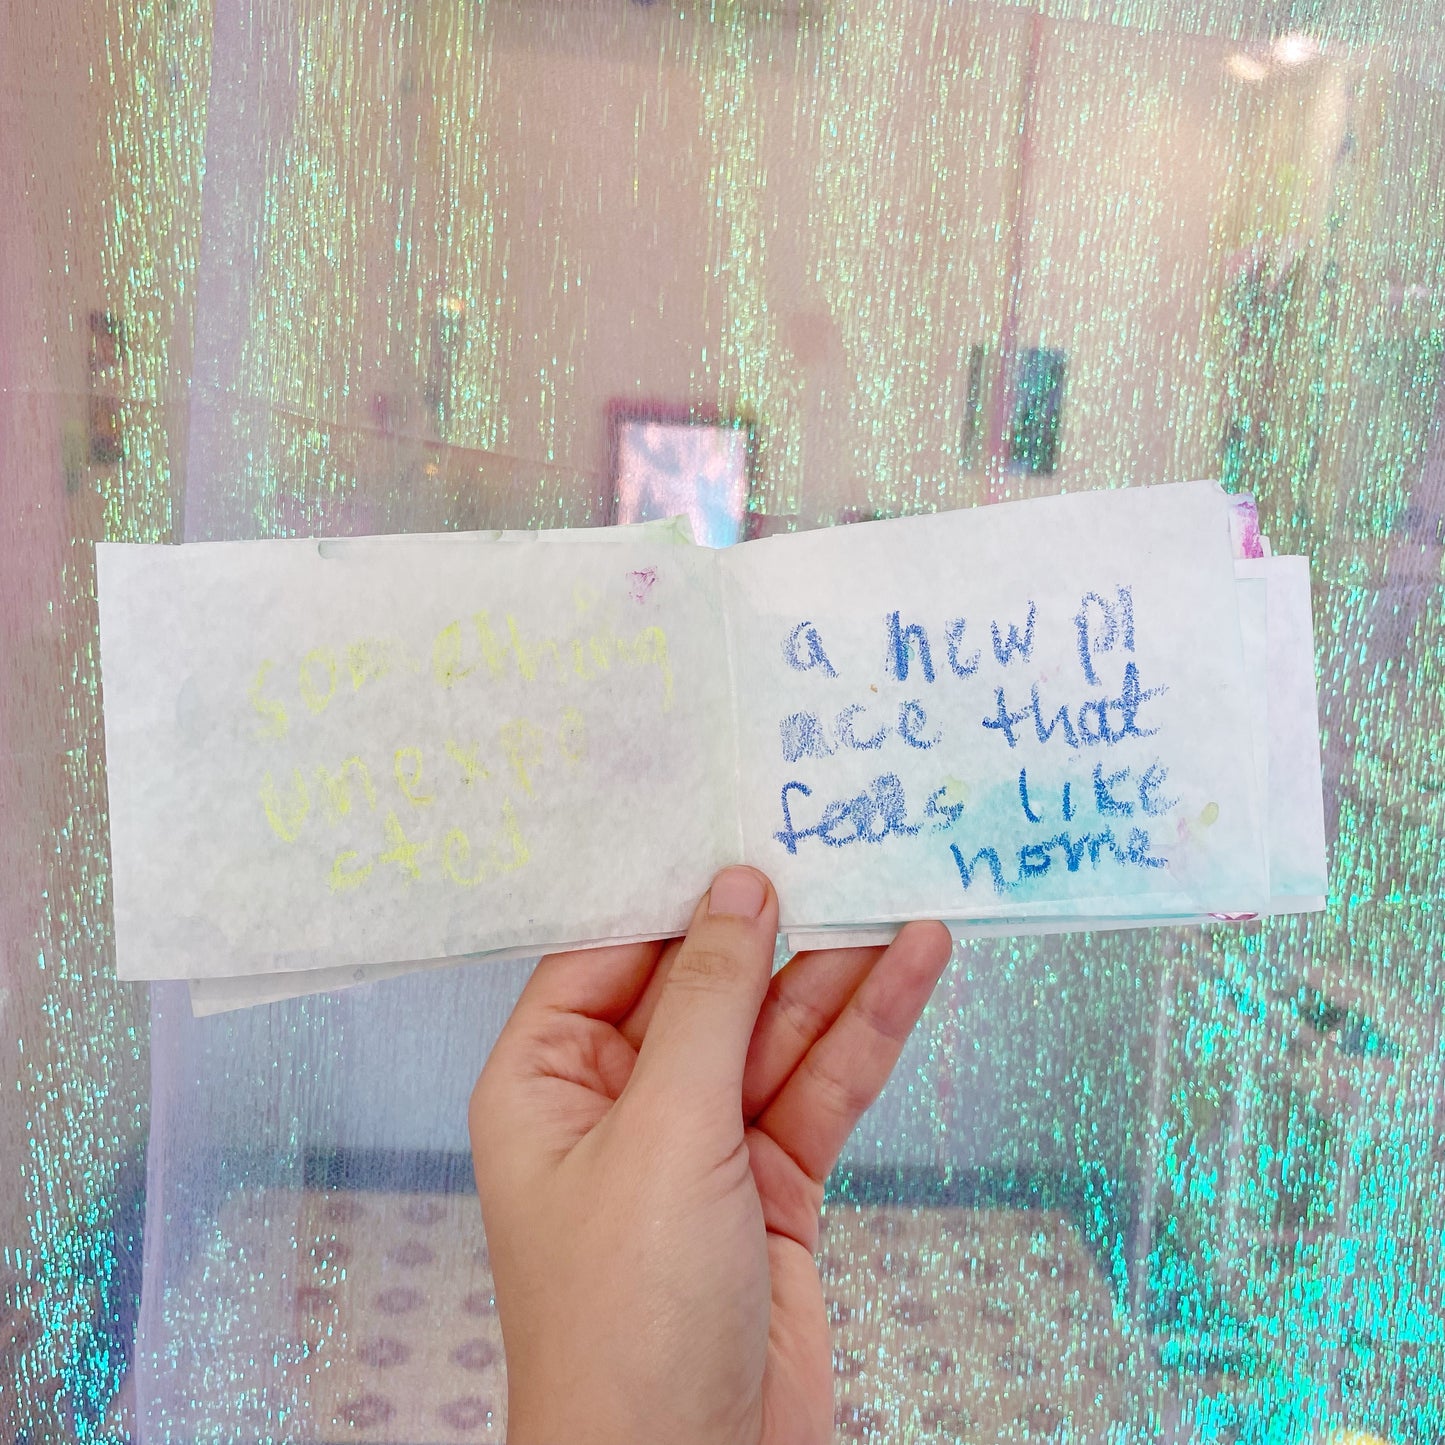 something
unexpe
cted
a new pl
ace that
feels like
home